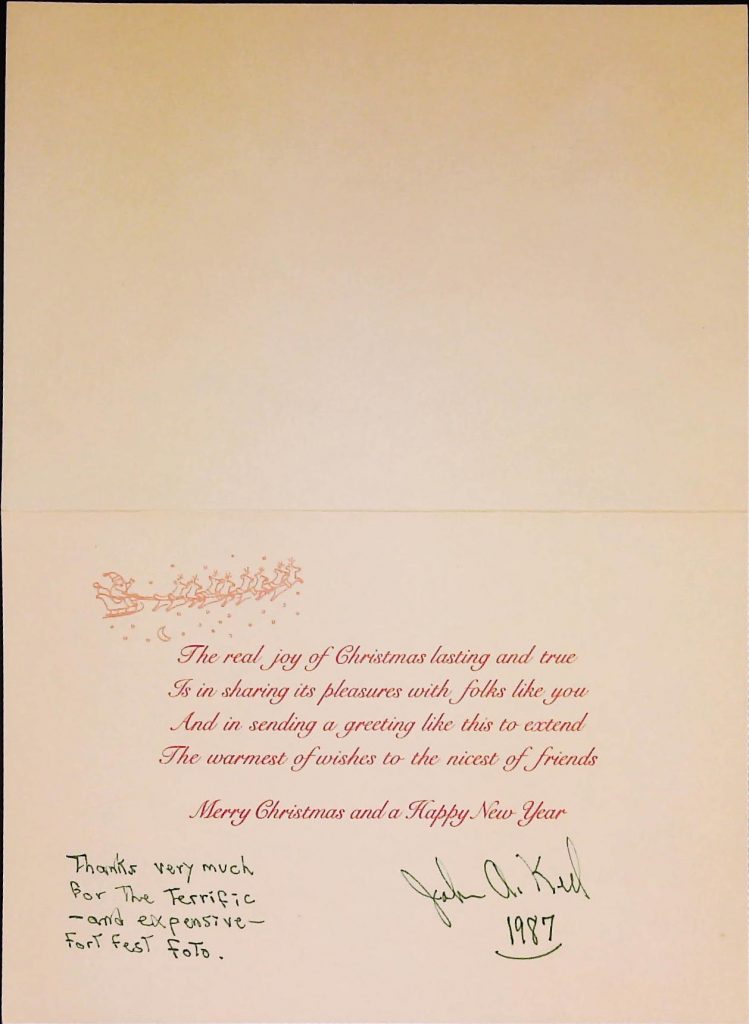 The real joy of Christmas lasting and true
Is in sharing its pleasures with folks like you
And in sending a greeting like this to extend
The warmest of wishes to the nicest of friends
Merry Christmas and a Happy New Year
Thanks very much
for The Terrific
—and expensive—
Fort Fest Foto.
John A. Keel
1987